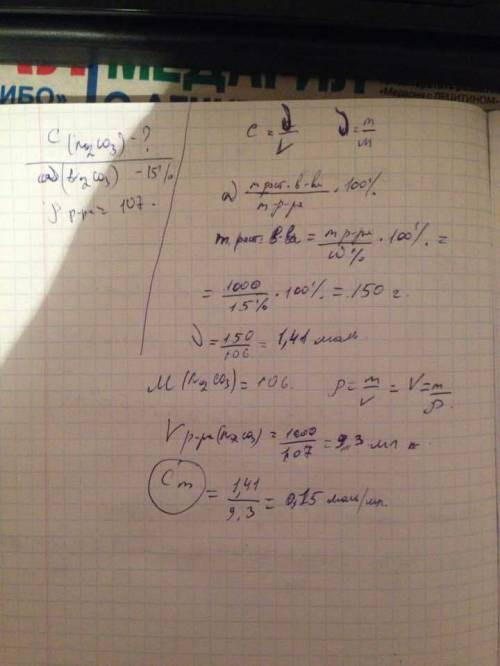 МЕДАРИЛ
ИБО»
ЛЕЦИТИНОМ
C (Na2CO3) - ?
ω (Na2CO3) - 15%
ρ р-ра = 107.
C = ν/V ν = m/M
ω) m раст. в-ва / m р-ра · 100%
m раст. в-ва = m р-ра / ω% · 100% =
= 1000 / 15% · 100% = 150 г.
ν = 150/106 = 1,41 моль
M (Na2CO3) = 106. ρ = m/V = V = m/ρ.
V р-ра (Na2CO3) = 1000/107 = 9,3 мл
Cm = 1,41/9,3 = 0,15 моль/мл.